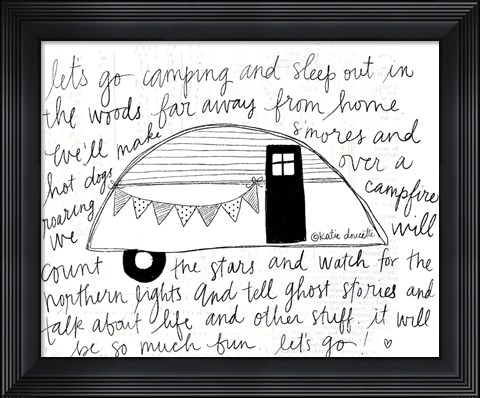 let's go camping and sleep out in
the woods far away from home.
We'll make s'mores and
hot dogs over a
roaring campfire
we will
©katie doucette
count the stars and watch for the
northern lights and tell ghost stories and
talk about life and other stuff. it will
be so much fun. let's go!